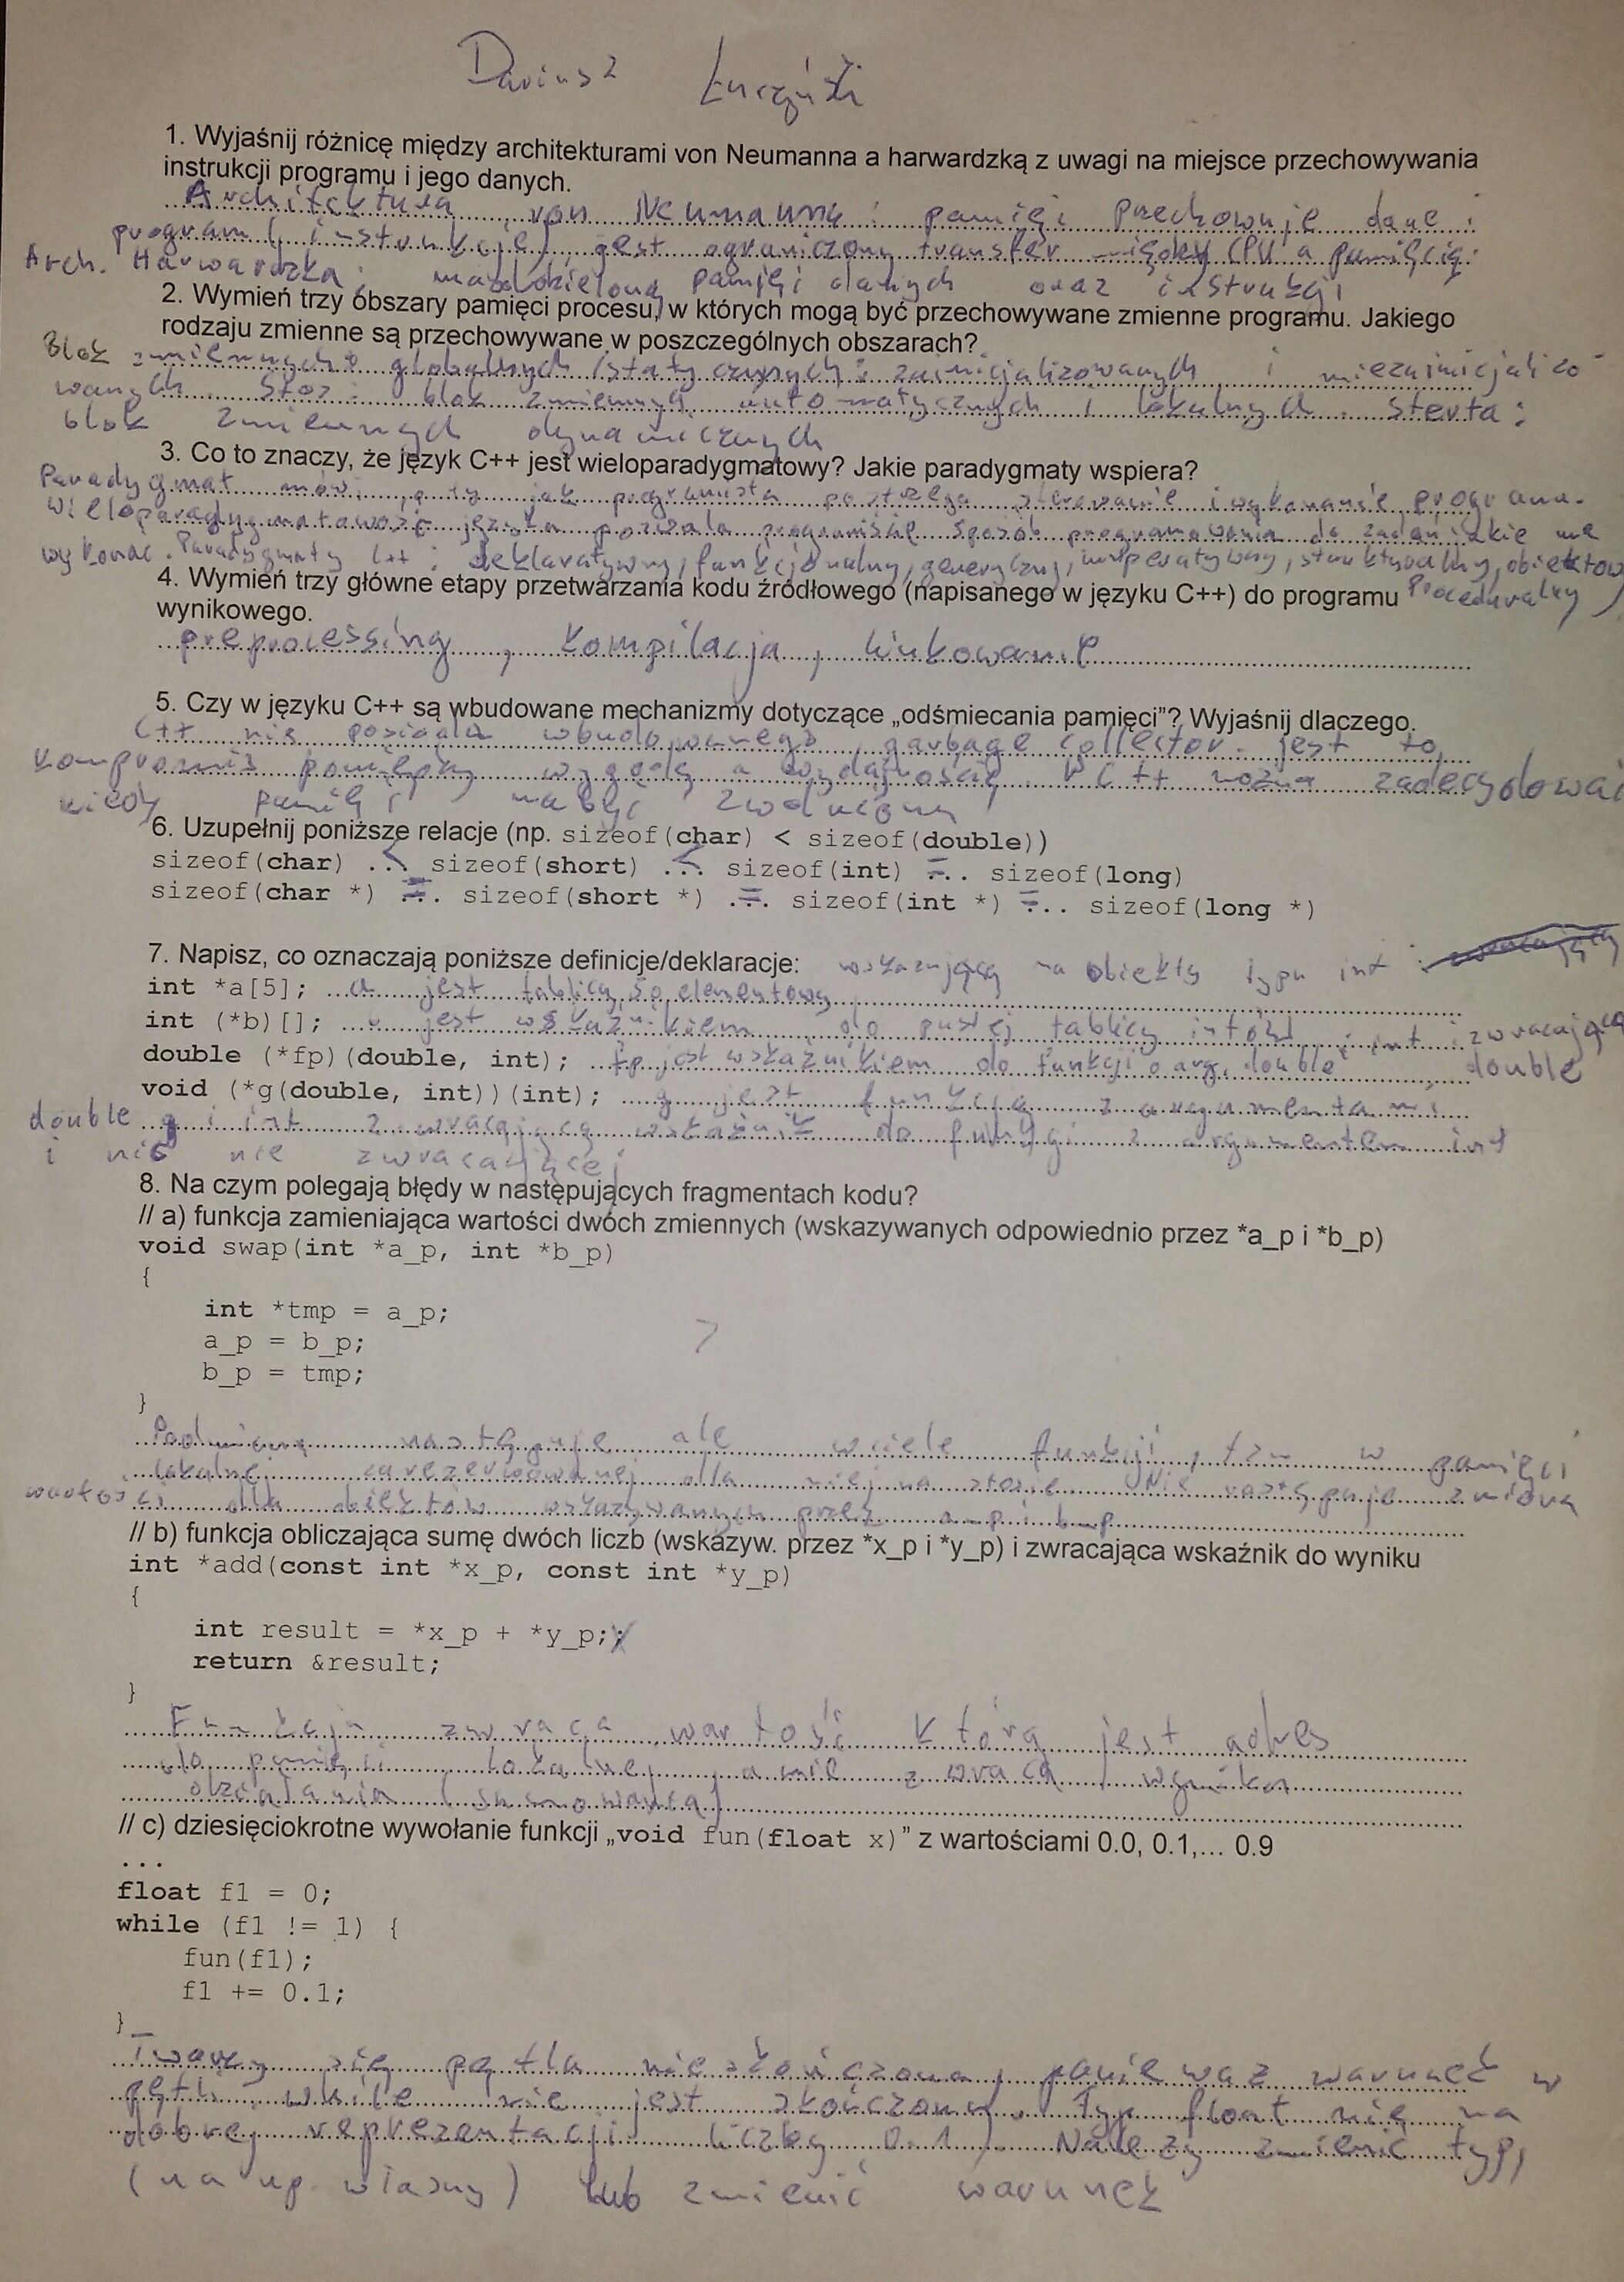 Dariusz
1. Wyjaśnij różnicę między architekturami von Neumanna a harwardzką z uwagi na miejsce przechowywania
instrukcji programu i jego danych.
Architektura von Neumanna : pamięć przechowuje dane i
program (instrukcje), jest ograniczony transfer między CPU a pamięcią.
Arch. Harwardzka : ma oddzieloną pamięć danych oraz instrukcji
2. Wymień trzy obszary pamięci procesu, w których mogą być przechowywane zmienne programu. Jakiego
rodzaju zmienne są przechowywane w poszczególnych obszarach?
Blok zmiennych globalnych /statycznych : zainicjalizowanych i niezainicjalizo
wanych. Stos : blok zmiennych automatycznych i lokalnych. Sterta :
blok zmiennych dynamicznych
3. Co to znaczy, że język C++ jest wieloparadygmatowy? Jakie paradygmaty wspiera?
Paradygmat mówi o tym jak programista postrzega sterowanie i wykonanie program.
Wieloparadygmatowość języka pozwala programiście sposób programowania do zadań jakie ma
wykonać. Paradygmaty C++ : deklaratywny, funkcjonalny, generyczny, imperatywny, strukturalny, obiektow
4. Wymień trzy główne etapy przetwarzania kodu źródłowego (napisanego w języku C++) do programu Proceduralny
wynikowego.
preprocessing, kompilacja, linkowanie
5. Czy w języku C++ są wbudowane mechanizmy dotyczące „odśmiecania pamięci”? Wyjaśnij dlaczego.
C++ nie posiada wbudowanego garbage collector. jest to
kompromis pomiędzy wygodą a wydajnością. W C++ można zadecydować
kiedy pamięć ma być zwolniona
6. Uzupełnij poniższe relacje (np. sizeof(char) < sizeof(double))
sizeof(char) .<. sizeof(short) .<. sizeof(int) =.. sizeof(long)
sizeof(char *) .=. sizeof(short *) .=. sizeof(int *) =.. sizeof(long *)
7. Napisz, co oznaczają poniższe definicje/deklaracje: wskazującą na obiekty typu int
int *a[5]; a jest tablicą 5o elementową
int (*b)[]; jest wskaźnikiem do pustej tablicy intów
double (*fp)(double, int); fp jest wskaźnikiem do funkcji o arg. double i int i zwracającą double
void (*g(double, int))(int); g jest funkcją z argumentami
double i int zwracającą wskaźnik do funkcji z argumentem int
i nic nie zwracającej
8. Na czym polegają błędy w następujących fragmentach kodu?
// a) funkcja zamieniająca wartości dwóch zmiennych (wskazywanych odpowiednio przez *a_p i *b_p)
void swap(int *a_p, int *b_p)
{
int *tmp = a_p;
a_p = b_p;
b_p = tmp;
}
Podmiana następuje ale w ciele funkcji, tzn w pamięci
lokalnej zarezerwowanej dla niej na stosie. Nie następuje zmiana
wartości dla obiektów wskazywanych przez a_p i b_p
// b) funkcja obliczająca sumę dwóch liczb (wskazyw. przez *x_p i *y_p) i zwracająca wskaźnik do wyniku
int *add(const int *x_p, const int *y_p)
{
int result = *x_p + *y_p;;
return &result;
}
Funkcja zwraca wartość którą jest adres
do pamięci lokalnej, a nie zwraca wyniku
działania (sumowania)
// c) dziesięciokrotne wywołanie funkcji „void fun(float x)” z wartościami 0.0, 0.1,... 0.9
...
float f1 = 0;
while (f1 != 1) {
fun(f1);
f1 += 0.1;
}
Tworzy się pętla nieskończona, ponieważ warunek w
pętli while nie jest skończony. Typ float nie ma
dobrej reprezentacji liczby 0.1. Należy zmienić typ,
(na np. własny) lub zmienić warunek